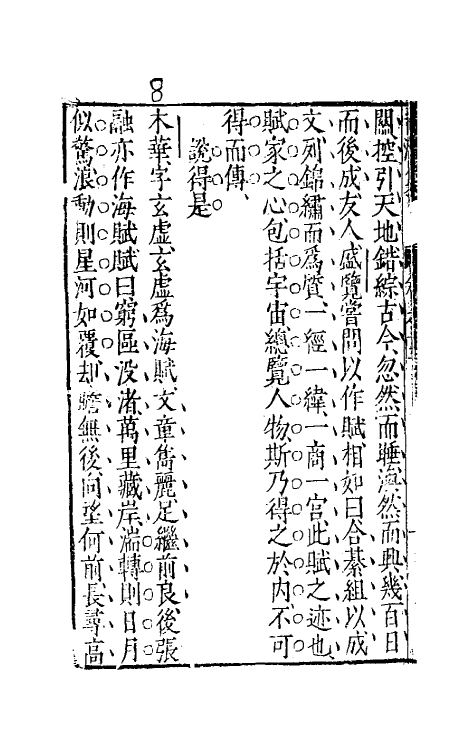 8
關控引天地錯綜古今忽然而睡渙然而興幾百日
而後成友人盛覽嘗問以作賦相如曰合綦組以成
文列錦繡而爲質一經一緯一商一宮此賦之迹也
賦家之心包括宇宙總覽人物斯乃得之於内不可
得而傳
說得是
木華字玄虛玄虛爲海賦文章雋麗足繼前良後張
融亦作海賦賦曰窮區没渚萬里藏岸湍轉則日月
似驚浪動則星河如覆却瞻無後向望何前長尋高